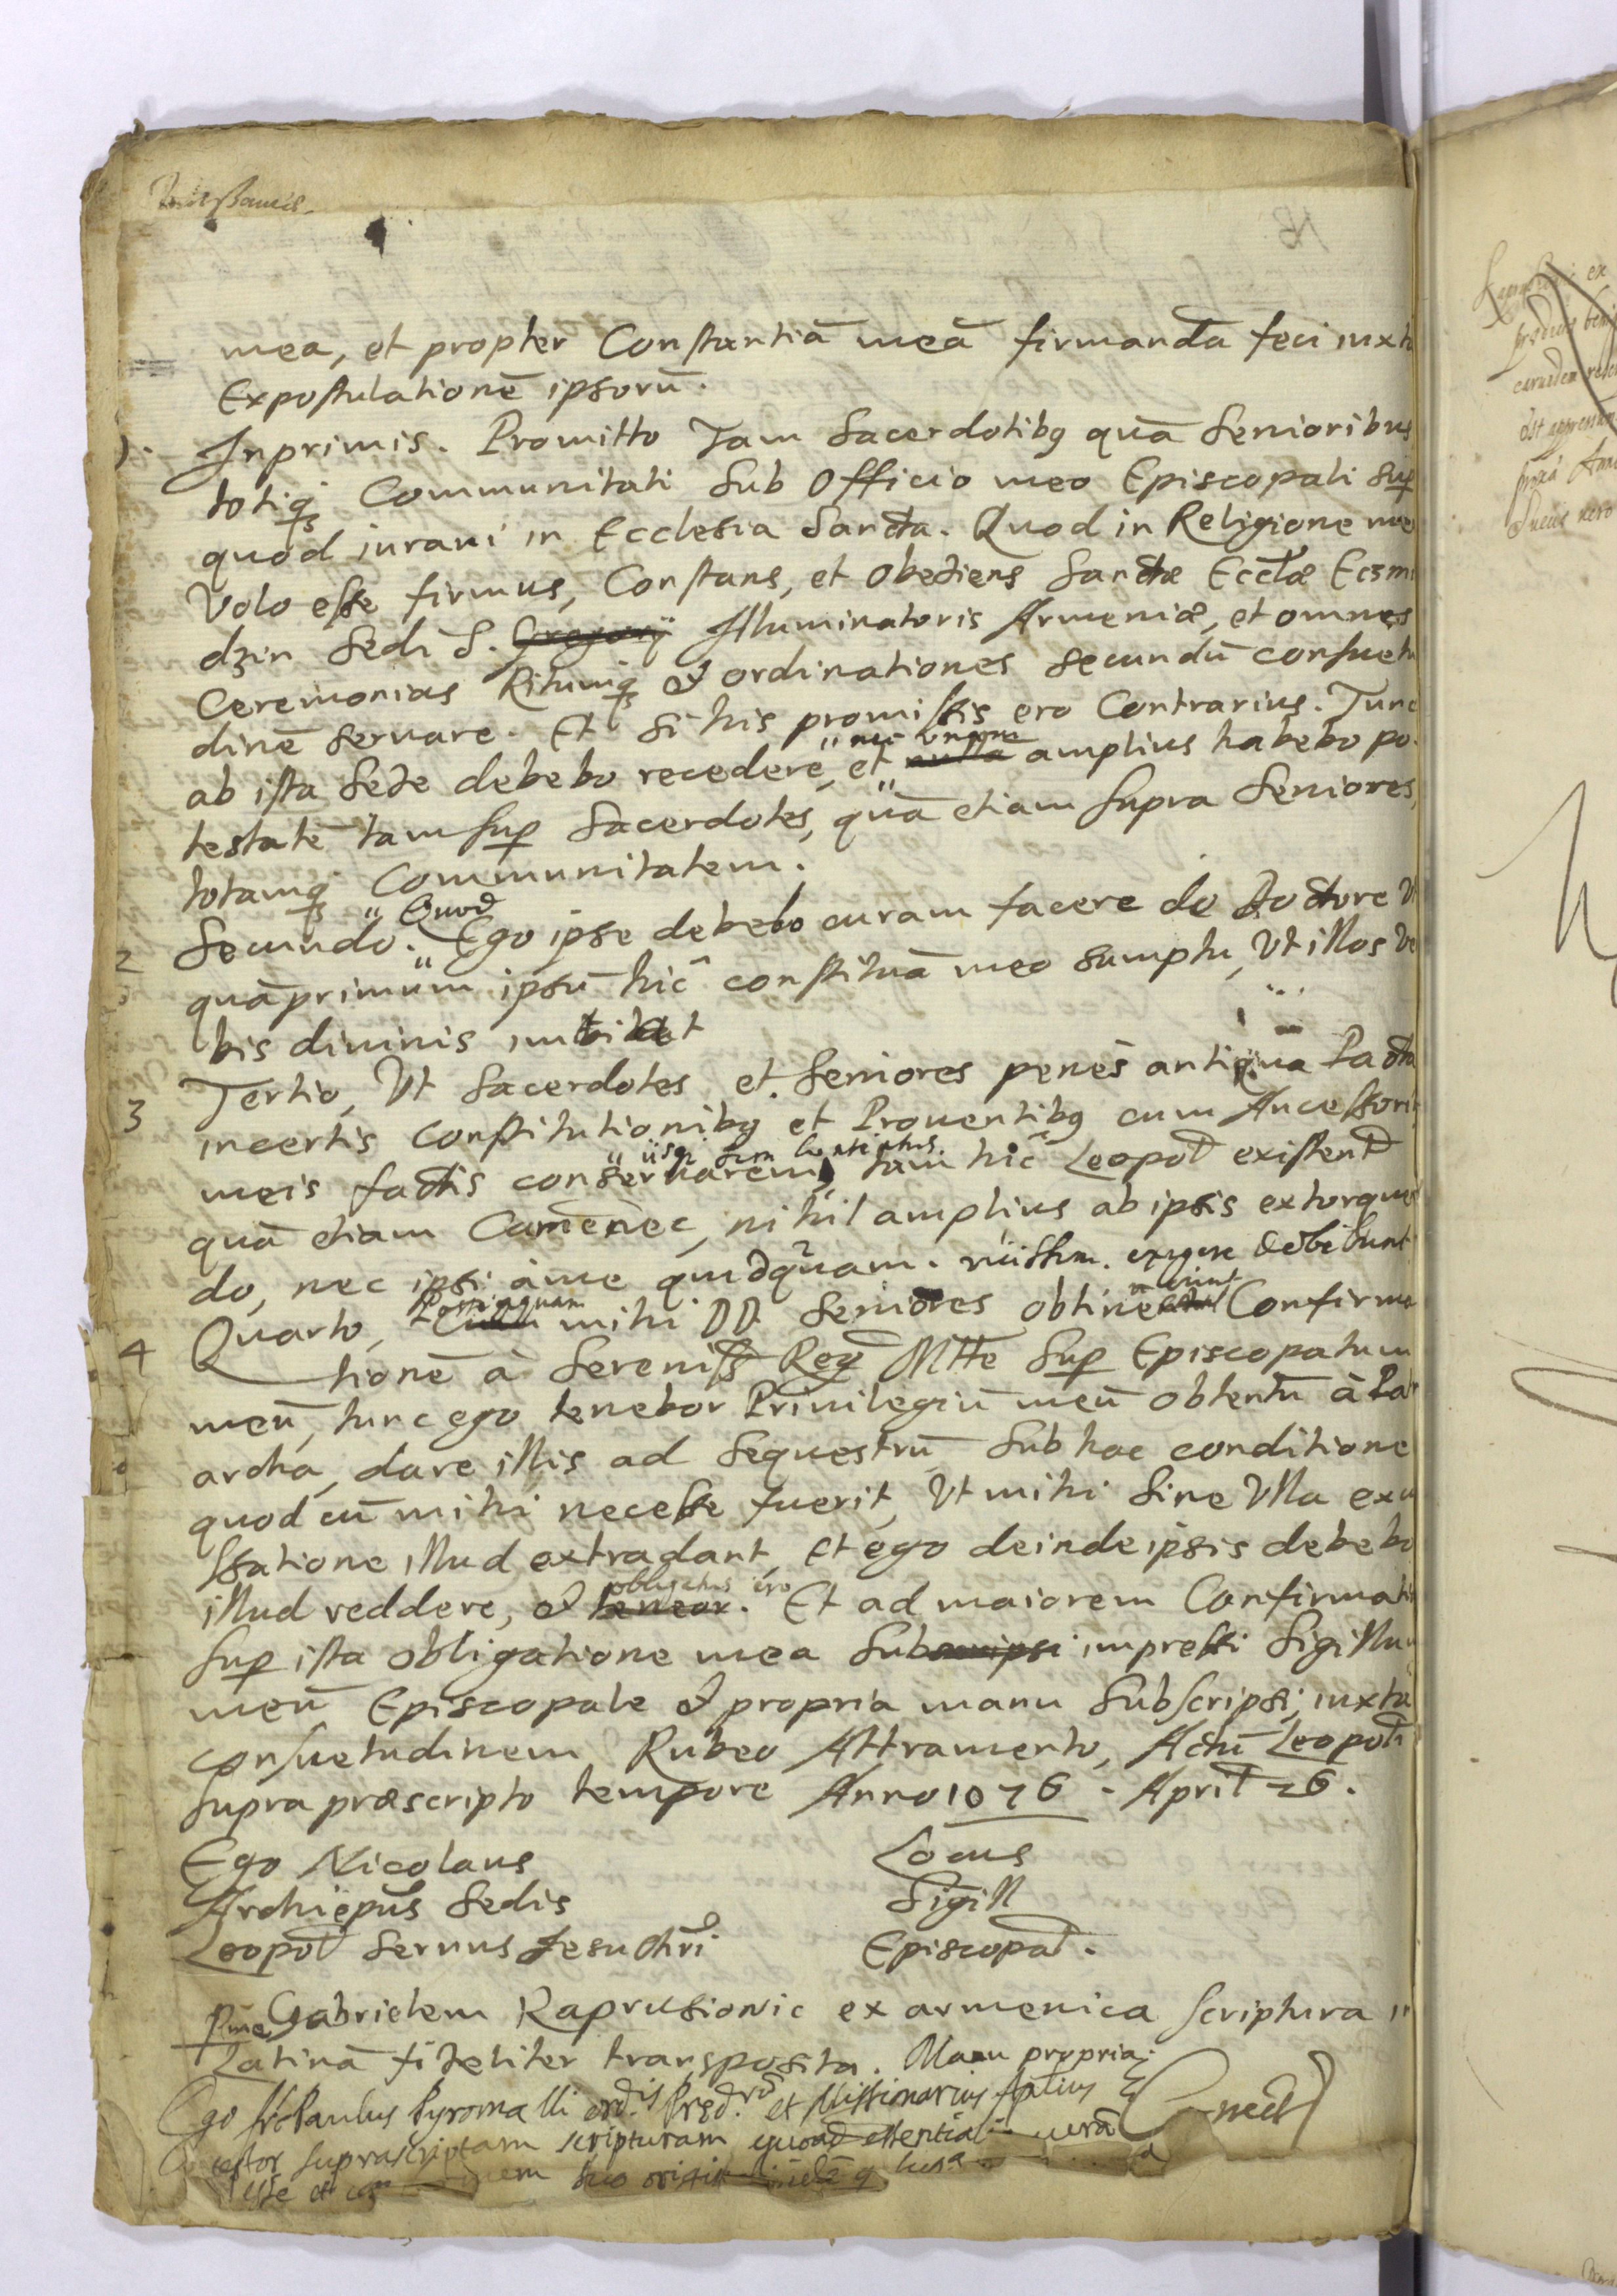 mea, et propter Constantiā meā firmandā feci iuxta
Expostulationē ipsorū.
1. Inprimis. Promitto Tam Sacerdotibg quā Senioribus
totiq̄ Communitati Sub Officio meo Episcopali sup
quod iuravi in Ecclesia Sancta. Quod in Religione mea
Volo esse firmus, Constans, et obediens Sanctæ Ecclæ Eczmi
dzin Sedi S. Gregorij Illuminatoris Armeniæ, et omnes
Ceremonias Ritumq̄ & ordinationes secundū consuetu
dinē servare. Et si his promissis ero Contrarius. Tunc
nec unam
ab ista Sede debebo recedere, et nullā amplius habebo po
testatē tam sup Sacerdotes, quā etiam supra Seniores,
totamq̄ Communitatem.
Quod
2 Secundo. Ego ipse debebo curam facere de Doctore Vt
quāprimum ipsū hic constituā meo sumptu, Vt illos Ver
bis divinis imbibat
3 Tertio, Vt Sacerdotes et Seniores penes antiqua Pacta
incertis Constitutionibg et Proventibg cum Ancessorib
iisq sim contentus
meis factis conservarem, tam hic Leopol existent
quā etiam Camenec, nihil amplius ab ipsis extorquen
do, nec ipsi à me quidquam. exigere debebunt
Postquam
4 Quarto, Cum mihi DD. Seniores obtine Confirma
tionē à Sereniss Reg Mtte Sup Episcopatum
meū, tunc ego tenebor Privilegiū meū obtentū à Patri
archa, dare illis ad Sequestrū Sub hac conditione
quod cū mihi necesse fuerit, Vt mihi Sine Vlla excu
ssatione illud extradant, Et ego deinde ipsis debebo
obligatus ero
illud reddere, & tenear. Et ad maiorem Confirmatio
Sup ista obligatione mea Subscripsi impressi Sigillum
meū Episcopale & propria manu Subscripsi, iuxta
consuetudinem Rubeo Attramento, Actū Leopoli
supra præscripto tempore Anno 1076 - April 26.
Ego Nicolaus
Archiepūs Sedis
Leopol Servus Jesu Chri
Locus
Sigill
Episcopal.
P me Gabrielem Kaprusiovic ex armenica scriptura in
Latinā fideliter transposita. Manu propria.
Ego fr Paulus Pyromalli ord.is Pręd.rū et Missionarius Aplicus
testor suprascriptam scripturam quoad essentialia verā
esse et suo origin